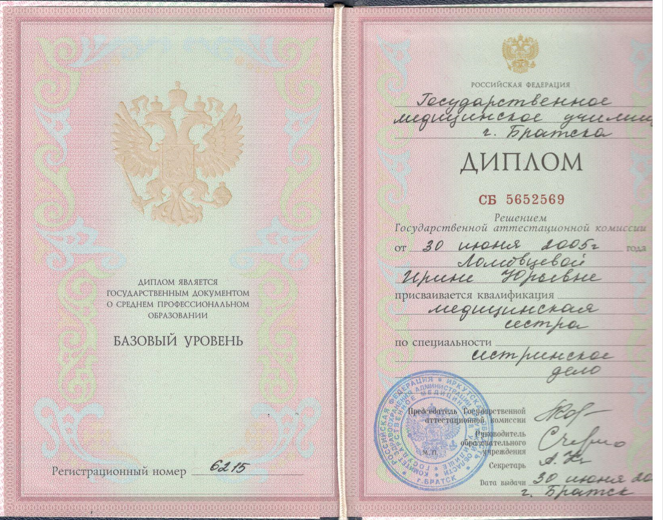 ДИПЛОМ ЯВЛЯЕТСЯ
ГОСУДАРСТВЕННЫМ ДОКУМЕНТОМ
О СРЕДНЕМ ПРОФЕССИОНАЛЬНОМ
ОБРАЗОВАНИИ
БАЗОВЫЙ УРОВЕНЬ
Регистрационный номер 6215
РОССИЙСКАЯ ФЕДЕРАЦИЯ
Государственное
медицинское учили
г. Братска
ДИПЛОМ
СБ 5652569
Решением
Государственной аттестационной комиссии
от 30 июня 2005г года
Ломовцевой
Ирине Юрьевне
присваивается квалификация
медицинская
сестра
по специальности
сестринское
дело
Председатель Государственной
аттестационной комиссии
Руководитель
образовательного
учреждения
Секретарь
М.П.
Дата выдачи 30 июня 20
г. Братск
РОССИЙСКАЯ ФЕДЕРАЦИЯ
г. БРАТСК